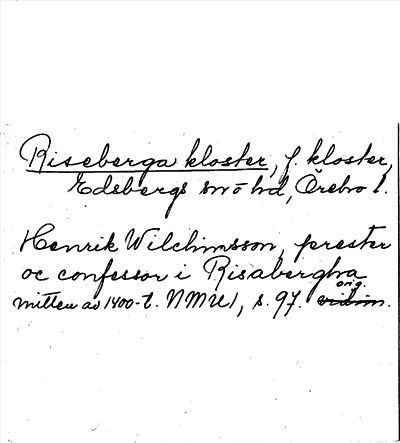 Riseberga kloster, f. kloster,
Edsbergs sn o hd, Örebro l.
Henrik Wilchinsson, prester
oc confessor i Risabergha
orig.
mitten av 1400-t. NMU 1, s. 97. vidim.